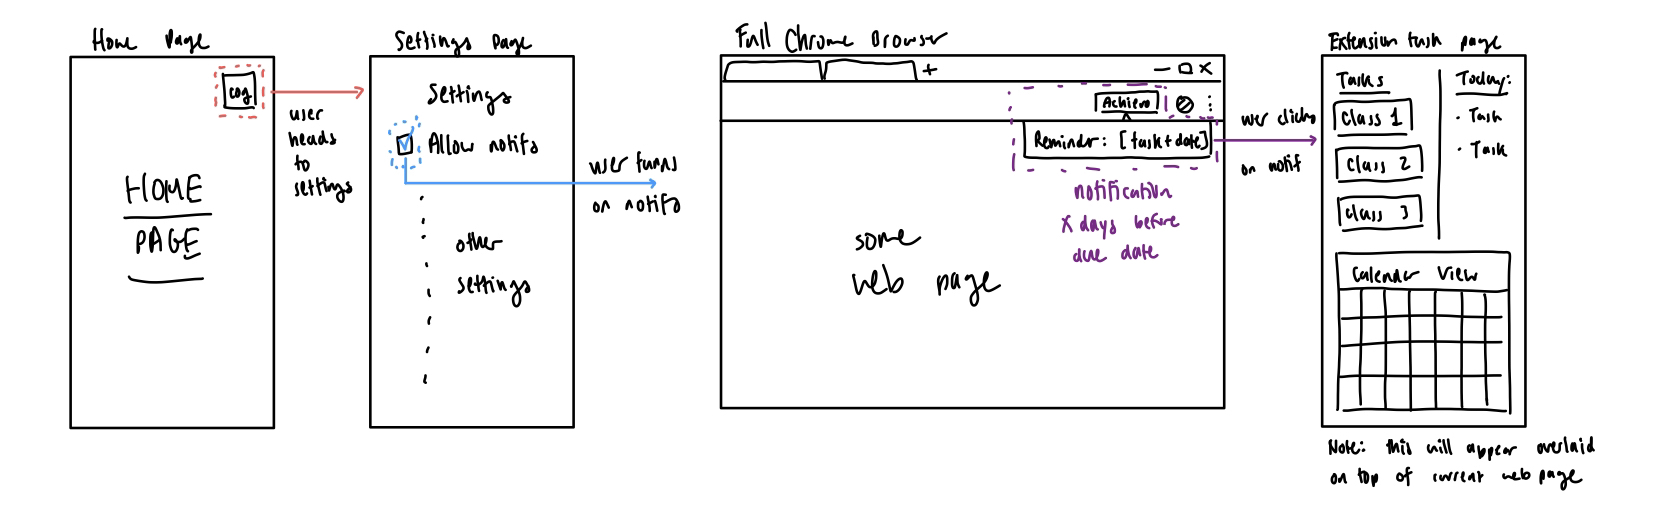 Home Page
cog
HOME
PAGE
user
heads
to
settings
Settings Page
Settings
Allow notifs
other
settings
user turns
on notifs
Full Chrome Browser
+
X
Achievo
Reminder: [task+date]
notification
X days before
due date
some
web page
user clicks
on notif
Extension task page
Tasks
Class 1
Class 2
class 3
Today:
· Task
· Task
Calender View
Note: this will appear overlaid
on top of current web page